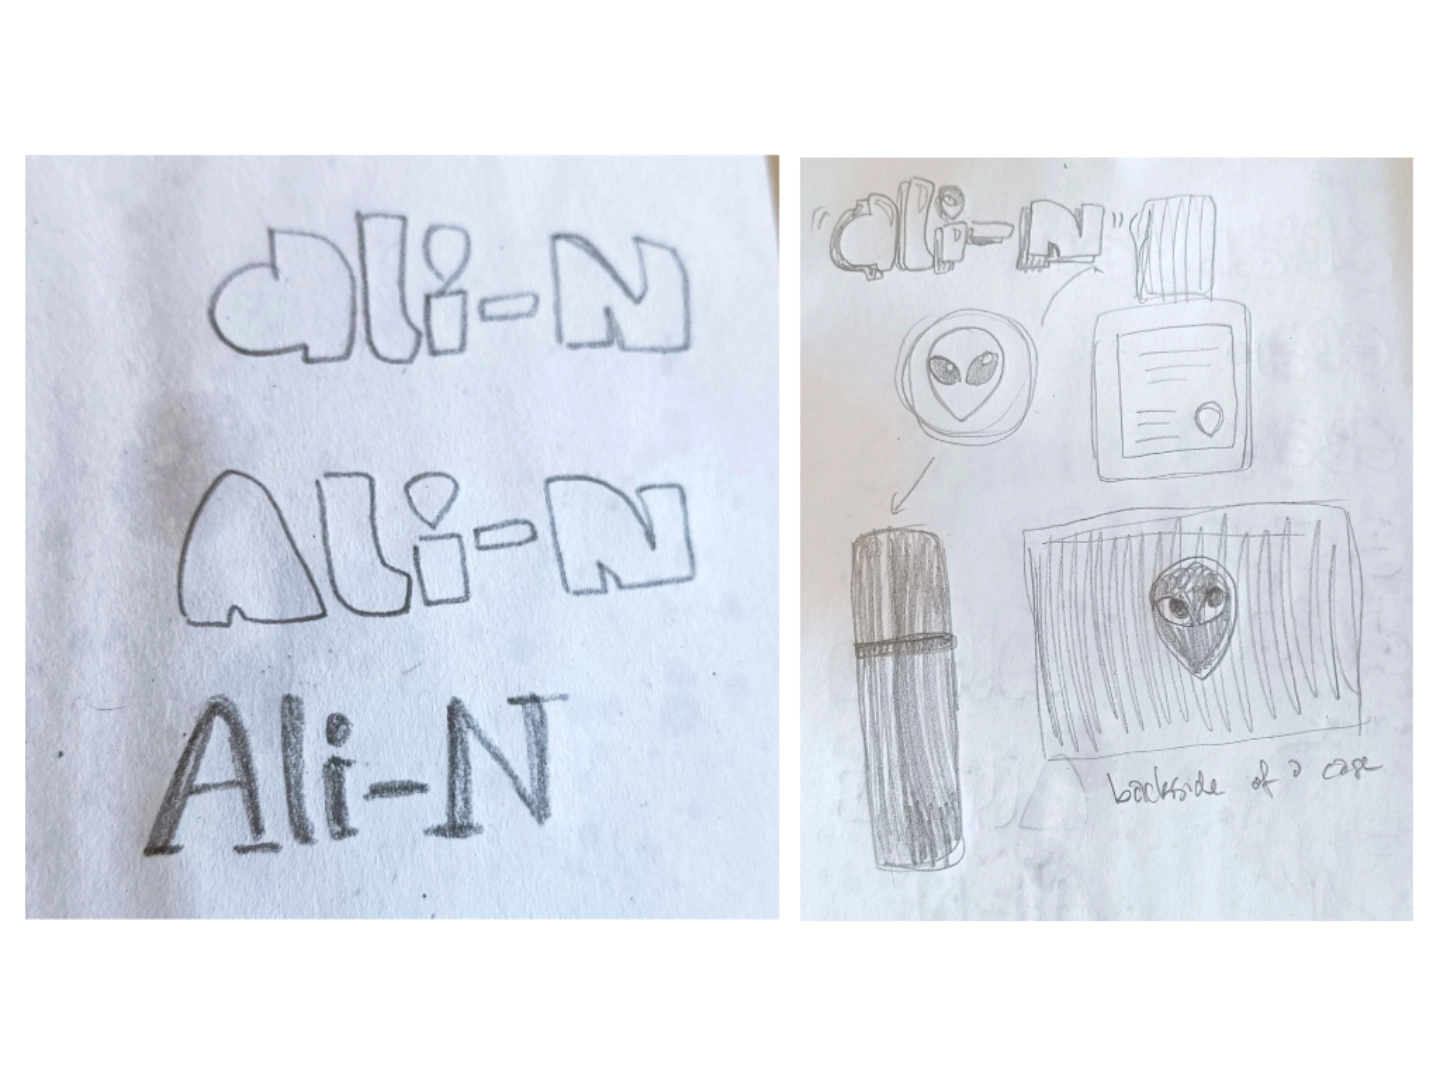 ali-N
Ali-N
Ali-N
"ali-N"
backside of a case